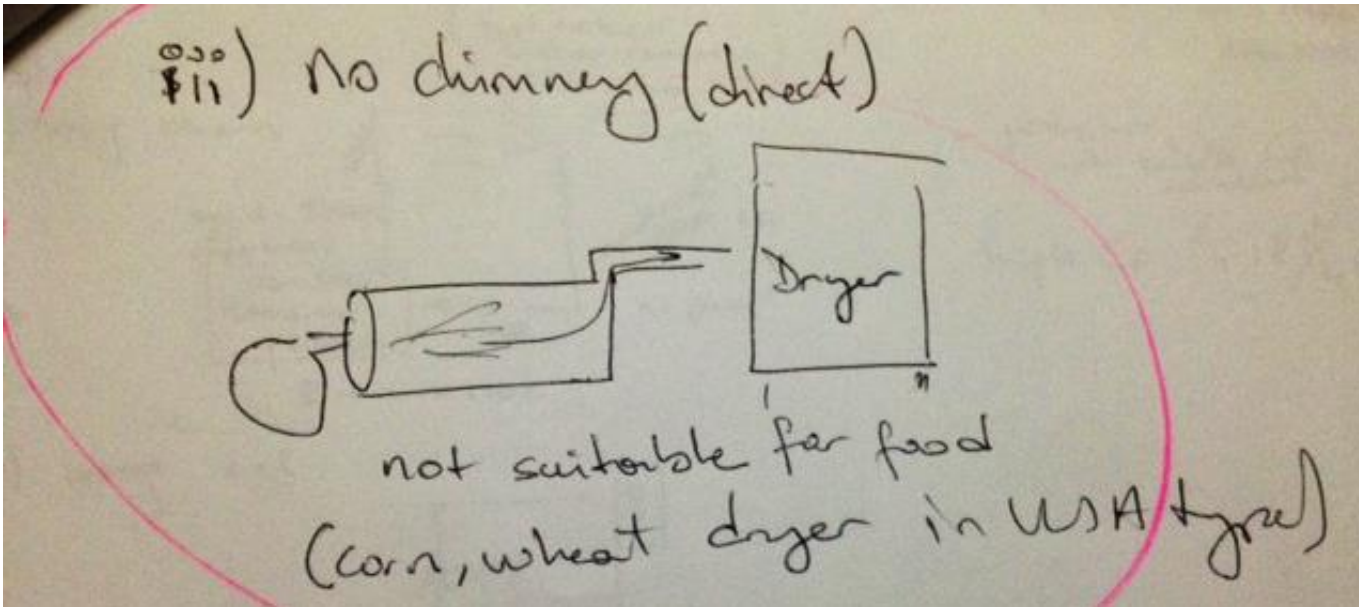 iii) no chimney (direct)
Dryer
not suitable for food
(corn, wheat dryer in USA type)